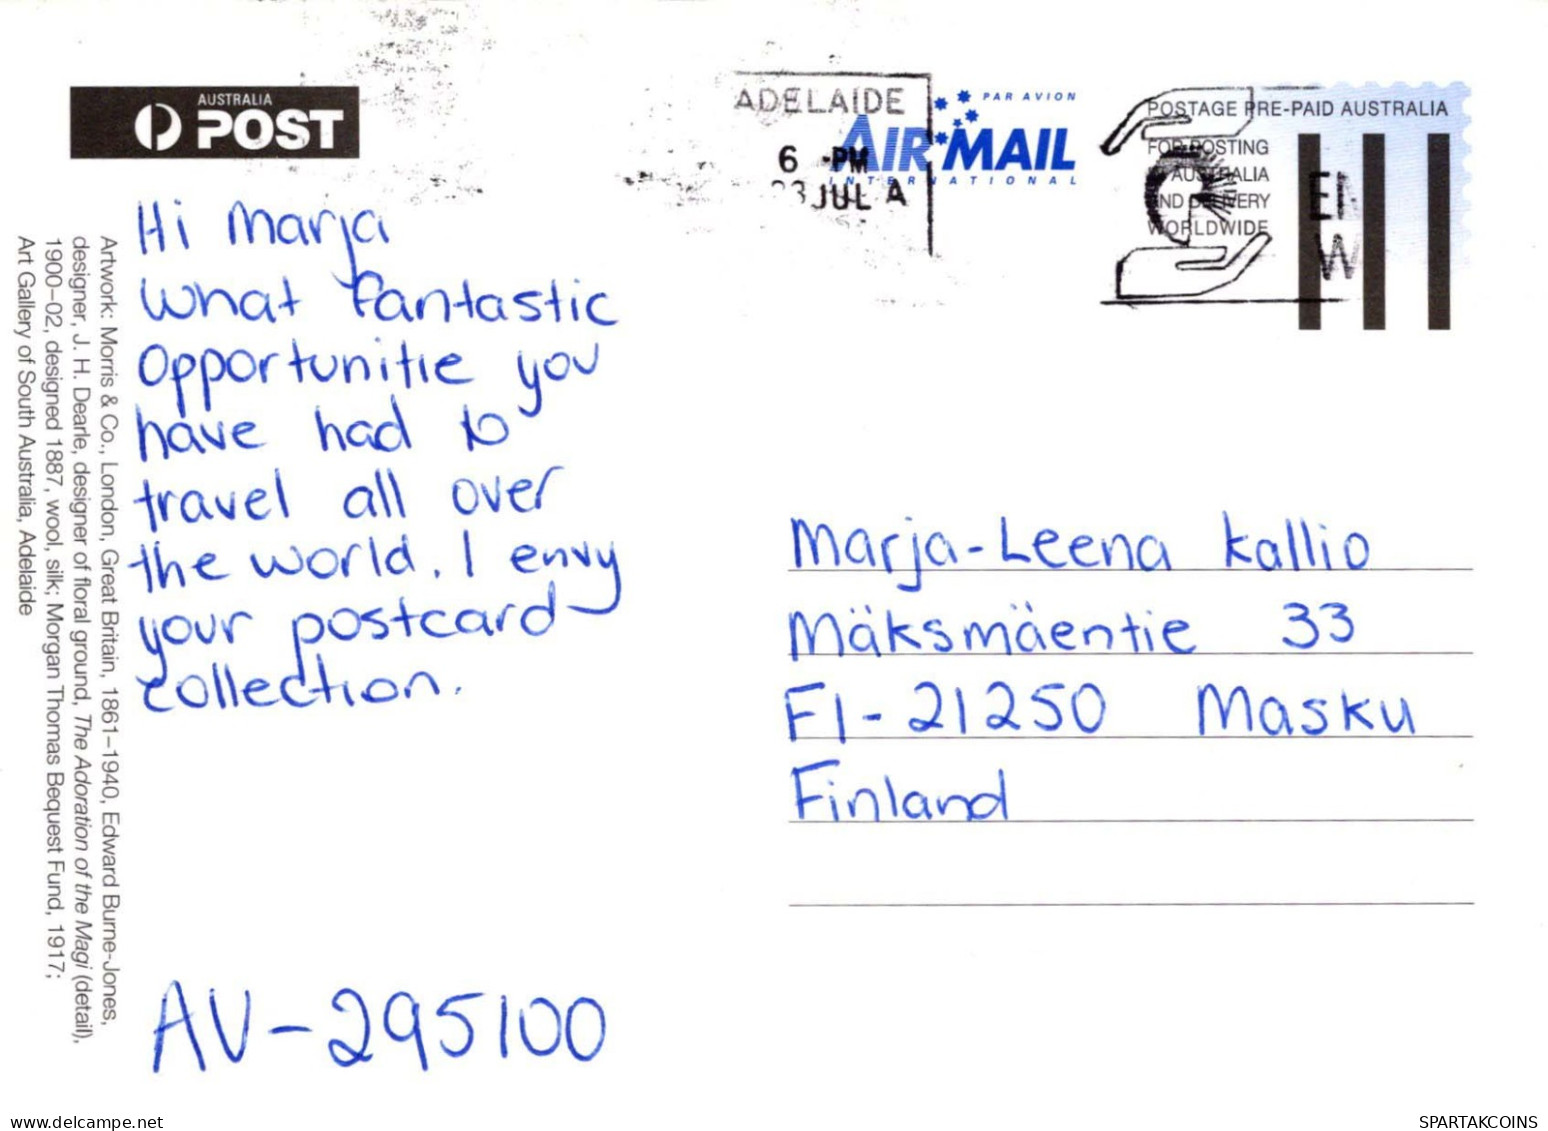 AUSTRALIA
POST
ADELAIDE
6 -PM
23 JUL A
PAR AVION
AIR MAIL
INTERNATIONAL
POSTAGE PRE-PAID AUSTRALIA
FOR POSTING
IN AUSTRALIA
AND DELIVERY
WORLDWIDE
Hi Marja
What fantastic
opportunitie you
have had to
travel all over
the world. I envy
your postcard
collection.
AV-295100
Marja-Leena Kallio
Mäksmäentie 33
FI-21250 Masku
Finland
Artwork: Morris & Co., London, Great Britain, 1861–1940, Edward Burne-Jones,
designer, J. H. Dearle, designer of floral ground, The Adoration of the Magi (detail),
1900–02, designed 1887, wool, silk; Morgan Thomas Bequest Fund, 1917;
Art Gallery of South Australia, Adelaide
www.delcampe.net
SPARTAKCOINS